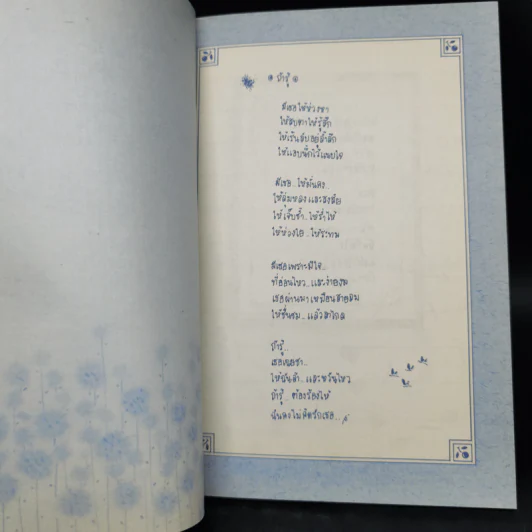 ถ้ารู้
มีเธอให้ห่วงหา
ให้สบตาให้รู้สึก
ให้เร้นลับอยู่ล้ำลึก
ให้แอบนึกไว้แนบใจ
มีเธอ..ให้มั่นคง..
ให้ลุ่มหลงและสงสัย
ให้เจ็บช้ำ..ให้ร่ำไห้
ให้ห่วงใย..ให้ระทม
มีเธอเพราะมีใจ..
ที่อ่อนไหว..และง่ายงม
เธอผ่านมาเหมือนสายลม
ให้ชื่นชม..แล้วลาไกล
ถ้ารู้..
เธอเฉยชา..
ให้ฉันล้า..และหวั่นไหว
ถ้ารู้..ต้องร้องไห้
ฉันคงไม่คิดรักเธอ..